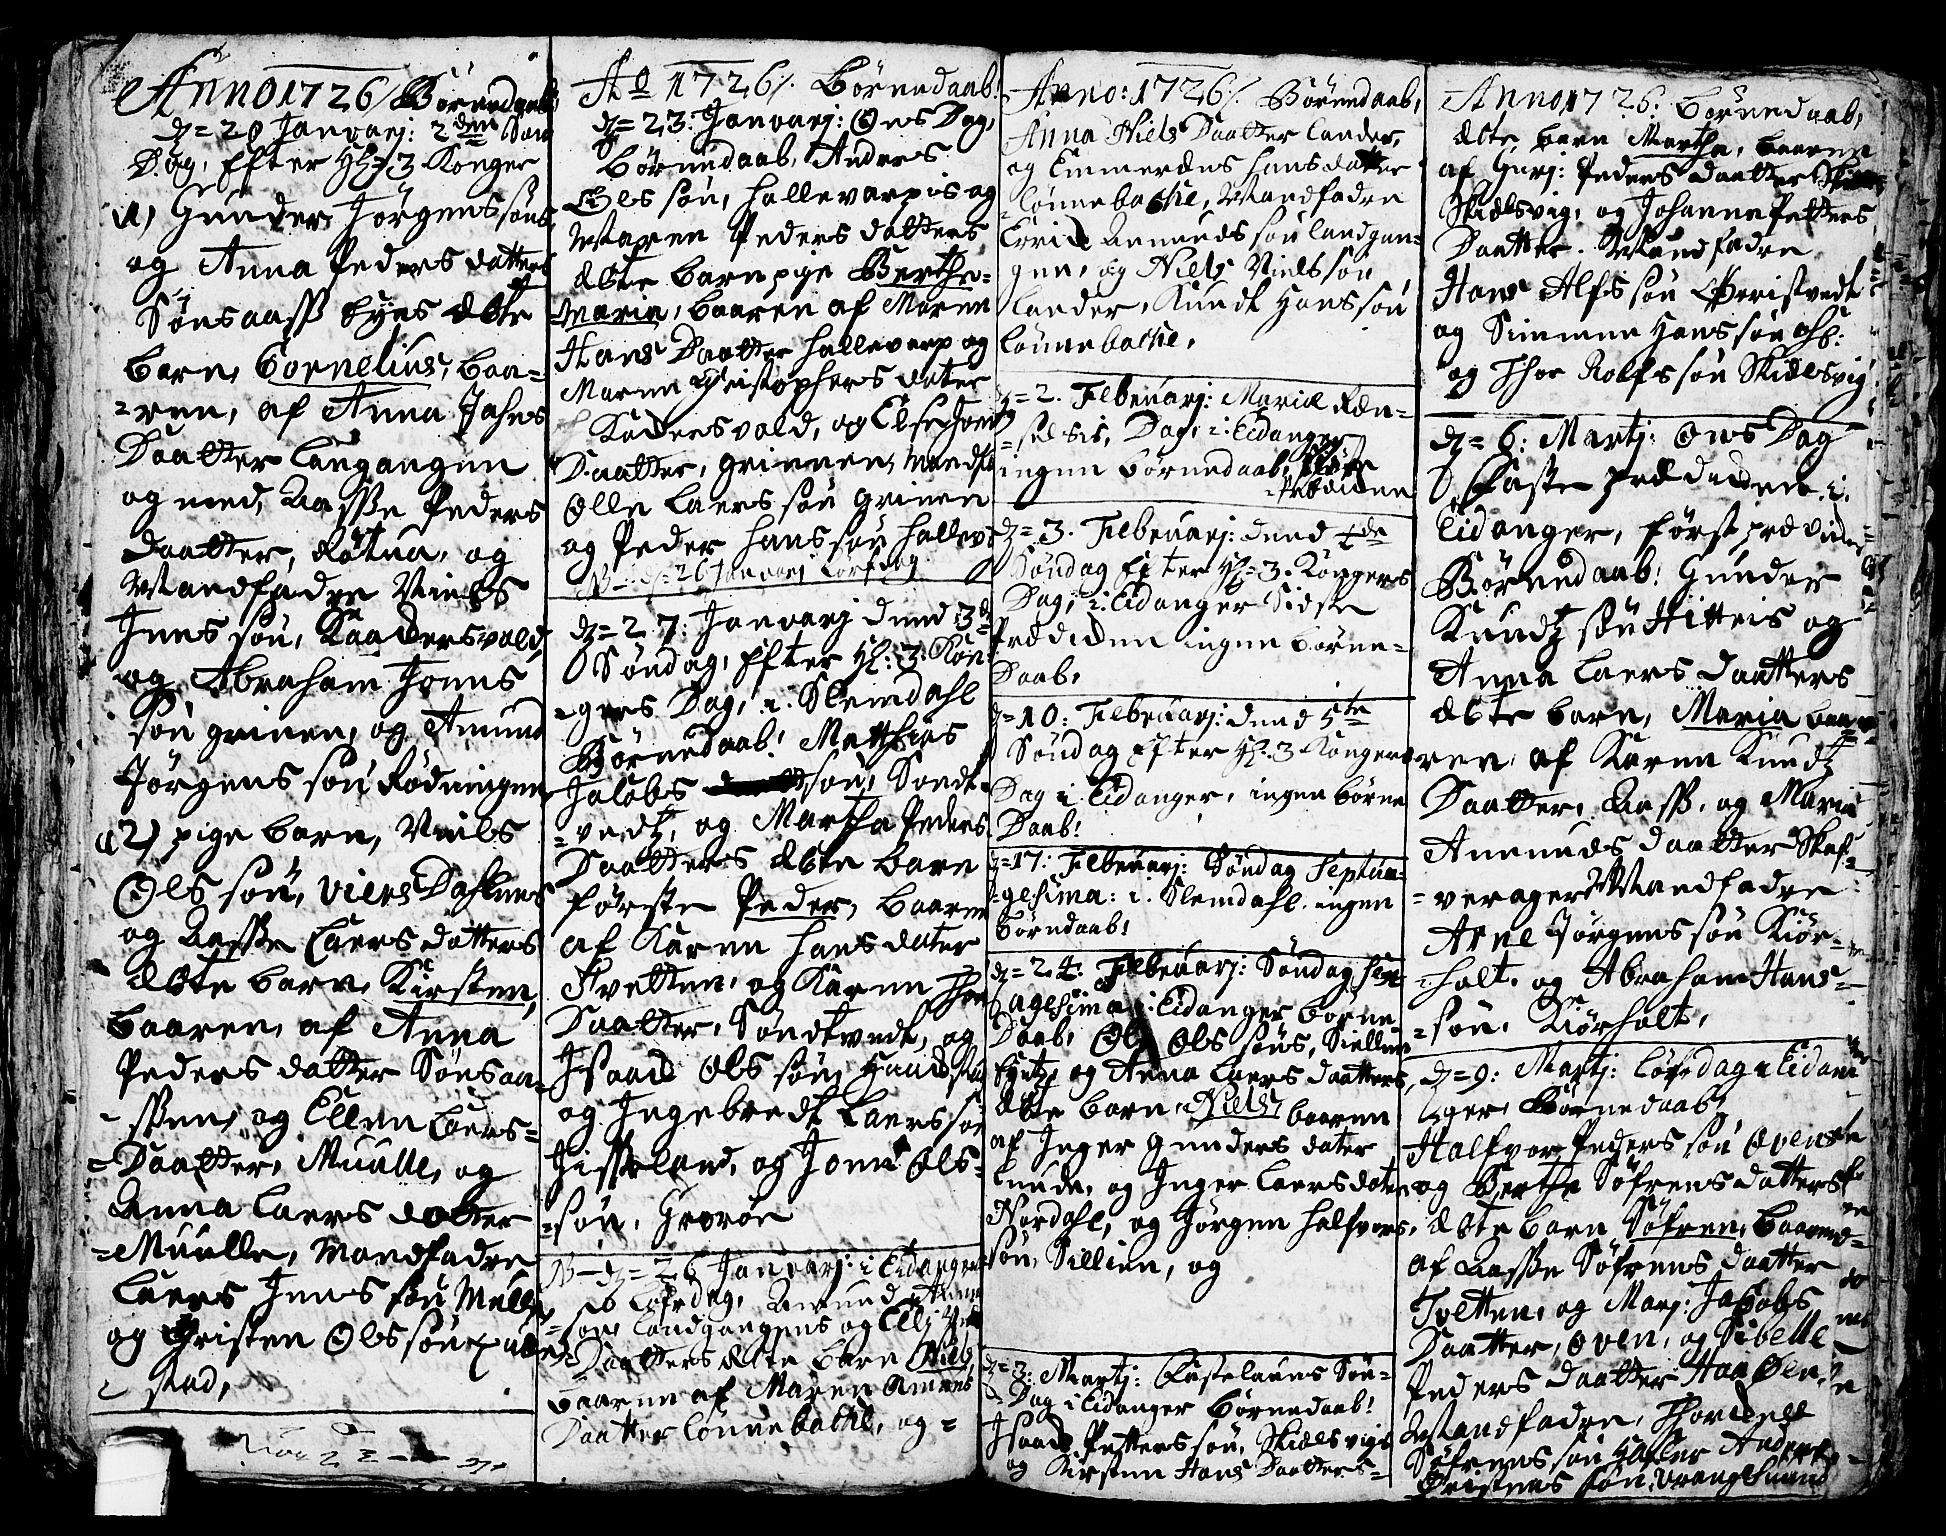 Anno 1726 / Börnedaab
d = 20 Januarj: 2den Søn
Dag, Efter Hl: 3 Konger
1) Gunder Jörgens søns
og Anna Peders datters
Sönsaass Eyes Ægte
barn, Cornelius, baa-
=ren, af Anna Jahns
Daatter Langangen
og med, Aasse Peders
Daatter, Rötua, og
Mandfadre Niels
Jens søn, Kaadersvold,
og Abraham Jonns
søn grinen, og Amund
Jörgens søn Rødningen
(2) pige barn, Niels
Ols søn, Viers Dahlens
og Aasse Laers datters
Ægte barn, Kirsten,
baaren, af Anna
Peders datter Sönsaa-
-ssen, og Ellen Laers=
=Daatter, Muulle, og
Anna Laers datter
=Muulle, Mandfadre
Laers Jens søn Mulle
og Christen Ols søn
stad,
Ao 1726 /. Börnedaab!
d = 23: Januarj: Ons Dag,
Börnedaab, Anders
Ols søn, Hallevarpis og
Maren Peders datters
Ægte barn pige Berthe-
Maria, baaren af Maren
Hans Daatter Hallevarp og
Maren Christophers dater
Kadersvold, og Else Joens
Daatter, grinen, Mandfa
Olle Laers søn grinen
og Peder Hans søn Hallev:
NB - d = 26 Januarj Løfdag
d = 27: Januarj dend 3de
Søndag, Efter Hl: 3: Kon-
-gers Dag, i. Slemdahl
Börnedaab! Matthias
Jacobs søn, Sondt-
=vedt, og Martha Peders
Daatters Ægte barn
förste Peder, baaren
af Karen Hans dater
Tvetten, og Karen Thor
Daatter, Søndtvedt, og
Isaach Ols søn Haastad
og Ingebredt Laers søn
Hisseland, og Jonn Ols-
=søn, Grorön
NB - d = 26 Januarj: i Eidanger
Løfrdag, Amund
=søn Landgangens og Ellj
Daatters Ægte barn Niels,
baaren af Maren Amunds
Daatter Lönnebache, og =
Anno: 1726 /. Börnedaab,
Anna Niels Daatter Lander,
og Emmerens Hans datter
Lönnebache, Mandfadre
Errich Amunds søn Landgan-
gen, og Niels Niels søn
Lander, Knudt Hans søn
Lönnebache,
d = 2. Februarj: Mariæ Ræn-
=selsis, Dag, i Eidanger
ingen börnedaab,
d = 3. Februarj: dend 4de
Søndag Efter Hl: 3. Kongers
Dag, i: Eidanger Sidste
Prædichen ingen Börne-
Daab,
d = 10: Februarj: dend 5te
Søndag Efter Hl: 3 Kongers
Dag i Eidanger, ingen börne
Daab!
d = 17: Februarj: Søndag Septua-
=gesima: i. Slemdahl. ingen
börndaab!
d = 24: Februarj: Søndag Sex
agesima: i Eidanger börne
Daab, Ole Ols søns,
og Anna Laers daatters,
Ægte barn, Niels, baaren
af Inger gunders dater
Lunde, og Inger Laers dater
Nordahl, og Jörgen Halfvors
søn, Sillien, og
d = 3: Martj: Fastelauns Søn=
Dag i Eidanger Börnedaab!
Isaach Petters søn, Skielsvigs
og Kirsten Hans Daatters=
Anno 1726: Börnedaab,
Ægte barn Martha, baaren
af Gurj: Peders Daatter
Skielsvig, og Johanne Petters
Daatter. Mandfadre
Hans Alfs søn
og Simmen Hans søn
og Thor Rolfs søn Skielsvig
d = 6: Martj: Ons Dag
Faste Prædichen. i.
Eidanger, först prædichen
Börnedaab! Gunder
Knudtz søn Hitteis og
Anna Laers Daatters
Ægte barn, Maria baa-
ren af Karen Knudtz
Daatter, Aass, og Maria
Amunds Daatter Skaf-
=verager Mandfadre
Arne Jörgens søn Kiör-
=holt, og Abraham Hans-
=søn, Kiörholt,
d = 9: Martj: Löfrdag i Eidan
ger, Börnedaab,
Halfvor Peders søn Ovens
og Berthe Söfrens datters
Ægte barn Söfren, baaren
af Aasse Söfrens Daatter
Tvetten, og Marj: Jacobs
Daatter, Oven, og Sibelle
Peders Daatter Haa Øen,
Mandfadre,
Söfrens søn Anders
Christens søn,